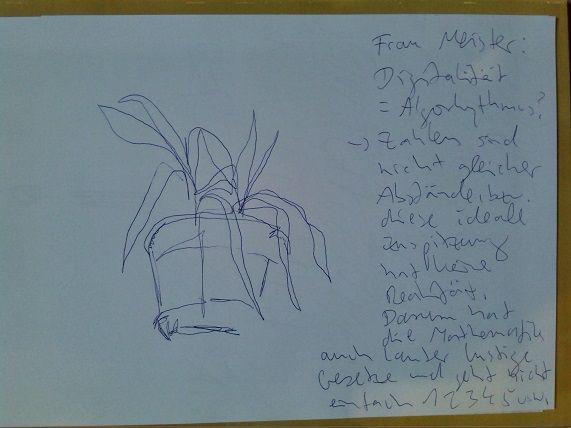 Frau Meister:
Digitalität
= Algorhythmus?
-> Zahlen sind
nicht gleicher
Abstände, bzw.
diese ideale
Zuspitzung
hat keine
Realität.
Darum hat
die Mathematik
auch lauter lustige
Gesetze und geht nicht
einfach 1 2 3 4 5 usw.